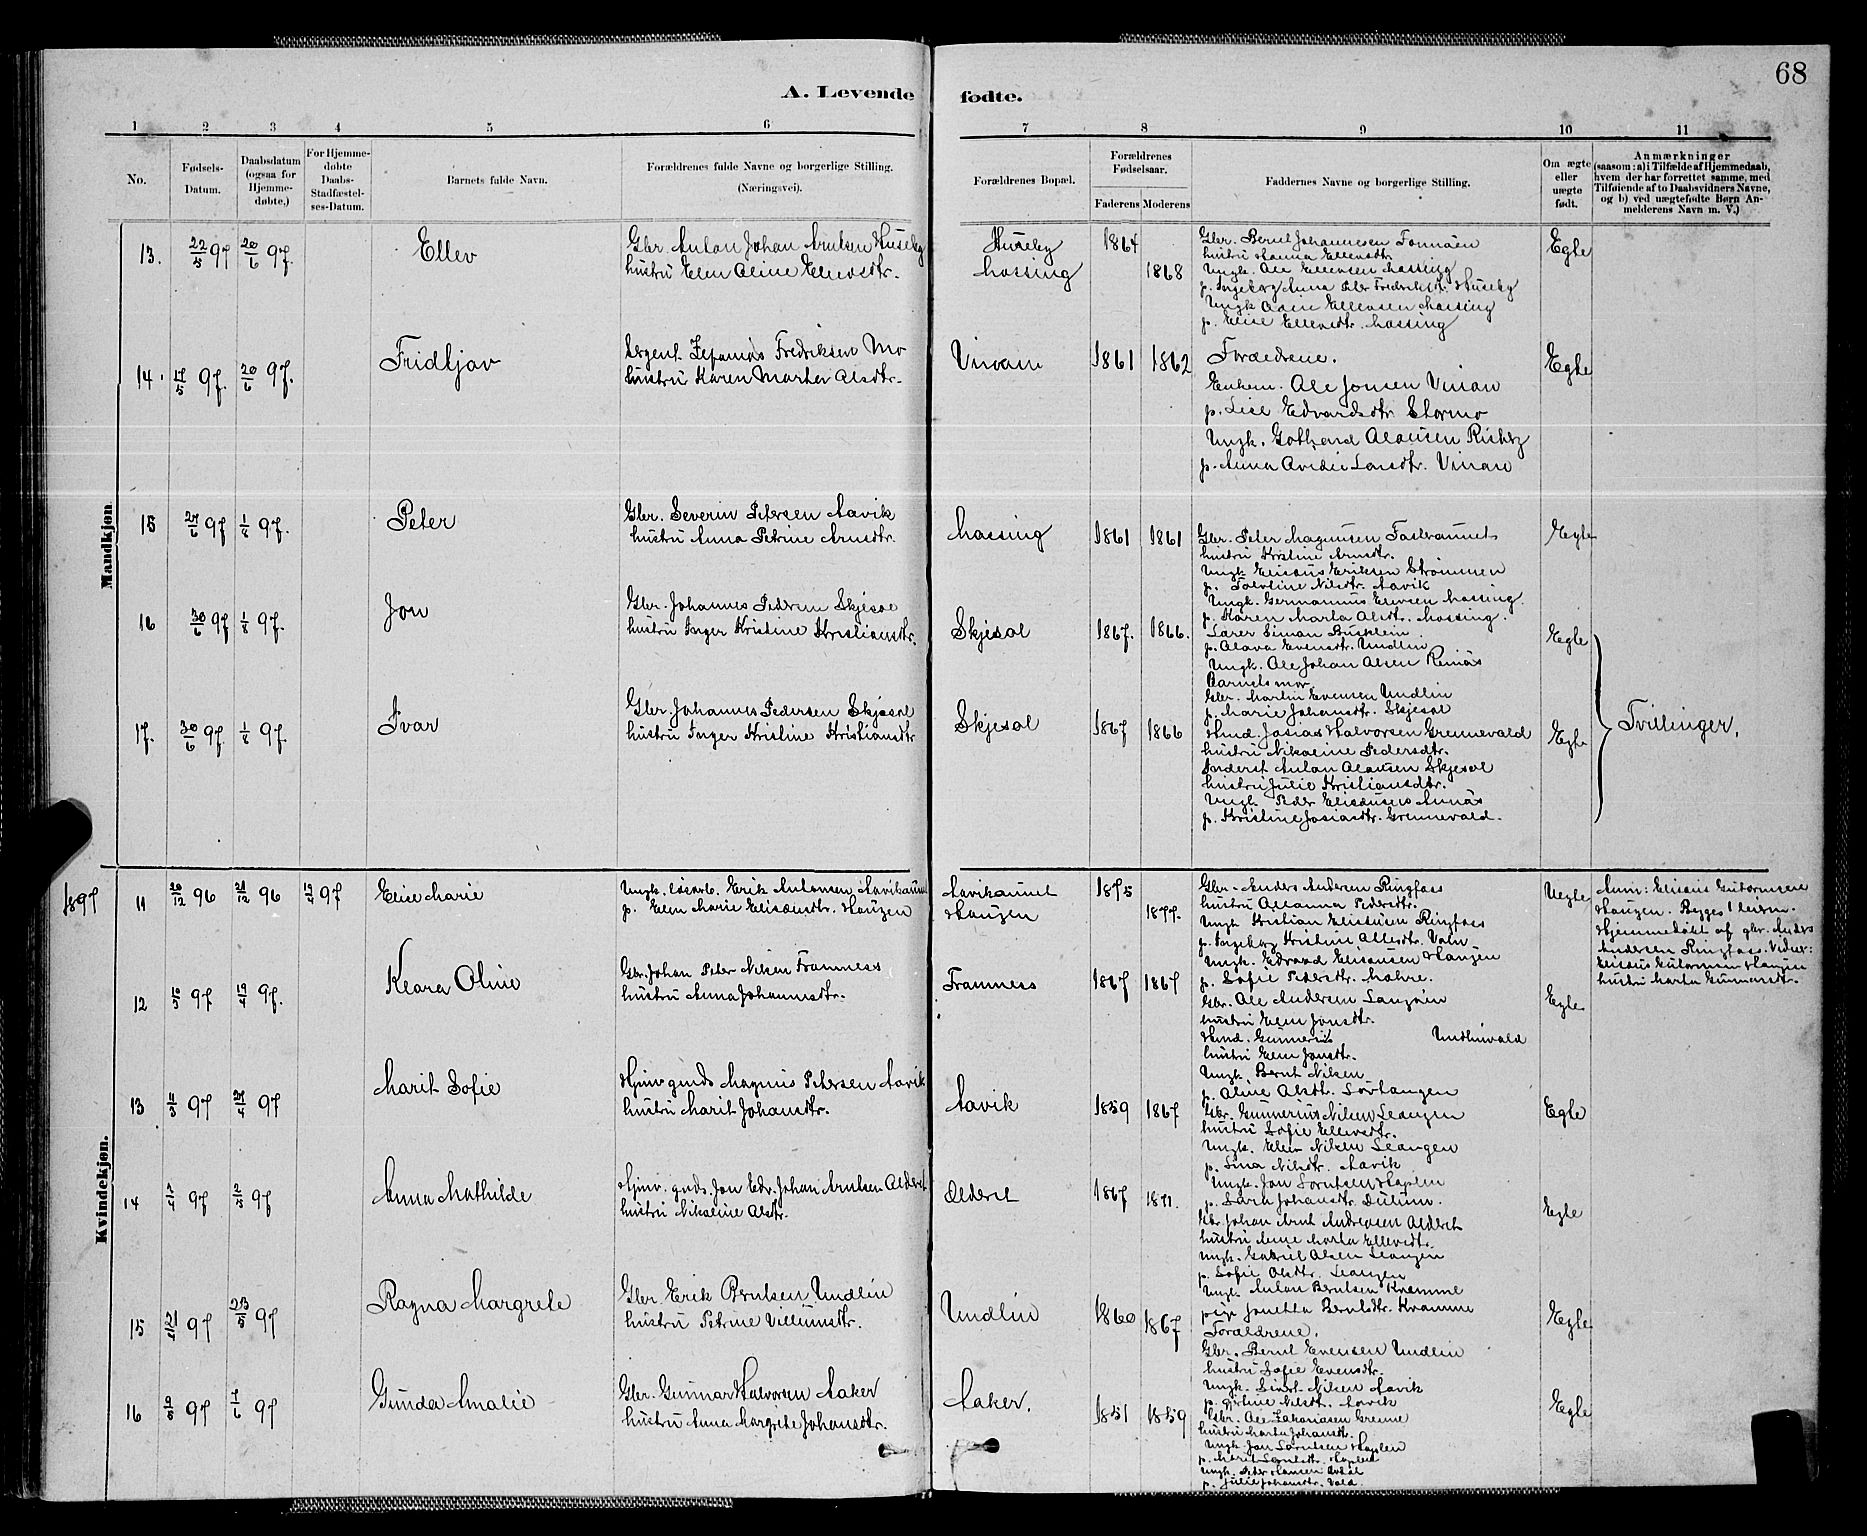 68
A. Levende fødte.
1 2 3 4 5 6 7 8 9 10 11
No.
Fødsels-Datum.
Daabsdatum (ogsaa for Hjemme-døbte.)
For Hjemme-døbte Daabs-Stadfæstel-ses-Datum.
Barnets fulde Navn.
Forældrenes fulde Navne og borgerlige Stilling. (Næringsvei).
Forældrenes Bopæl.
Forældrenes Fødselsaar.
Faderens Moderens
Faddernes Navne og borgerlige Stilling.
Om ægte eller uægte født.
Anmærkninger
(saasom: a) i Tilfælde af Hjemmedaab, hvem der har forrettet samme, med Tilføiende af to Daabsvidners Navne, og b) ved uægtefødte Børn Anmelderens Navn m. V.)
Mandkjøn.
13. 22/5 97 20/6 97. Ellev
Gbr. Anton Johan Arntsen Huseby
hustru Elen Aline Ellevsdtr.
Huseby
Mossing
1864 1868
Gbr. Bernt Johannesen
hustru Hanna Ellevsdtr.
Ungk. Ole Ellevsen Mossing
p. Ingeborg Anna Huseby
Ungk. Odin Ellevsen Mossing
p. Elise Ellevsdtr. Mossing
Egte
14. 17/5 97. 20/6 97. Fridtjov
Sergent. Zefanias Fredriksen Mo
hustru Karen Marta Olsdtr.
Vinvam
1861 1862
Forældrene.
Enkem. Ole Jonsen Vinan
p. Lise Edvardsdtr Stormo
Ungk. Gothard Olausen
p. Anna Larsdtr. Vinan
Egte
15 27/6 97 1/8 97. Peter
Gbr. Severin Petersen Aavik
hustru Anna Petrine Arntsdtr.
Mossing
1861 1861
Gbr. Peter Magnusen
hustru Kristine Arntsdtr.
Ungk. Eliseus Eriksen Strømmen
p. Nilsdtr. Aavik
Ungk. Germannus Elevsen Mossing.
p. Karen Marta Olsdtr. Mossing.
Egte
16 30/6 97 1/8 97. Jon
Gbr. Johannes Pedersen Skjesol
hustru Inger Kristine Kristiansdtr.
Skjesol
1867. 1866.
Lærer Simon Busklein.
p. Olava Evensdtr. Undlin
Ungk. Ole Johan Olsen Reinås
Barnets mor
Egte
17. 30/6 97. 1/8 97. Ivar
Gbr. Johannes Pedersen Skjesol
hustru Inger Kristine Kristiansdtr
Skjesol
1867 1866
Gbr. Martin Evensen Undlin
p. Marie Johansdtr. Skjesol
Hmd. Josias Halvorsen Grennevald
hustru Nikoline Pedersdtr.
Inderst Anton Olausen Skjesol
hustru Julie Kristiansdtr.
Ungk. Peder Eliseusen
p. Kristine Josiasdtr. Grennevald.
Egte
Tvillinger.
1897
Kvindekjøn.
11 20/12 96 21/12 96 19/4 97 Elise Marie
Ungk. løsarb. Erik Antonsen Aavikaunet
p. Elen Marie Eliseusdtr. Haugen
Aavikaunet
Haugen
1875 1877.
Gbr. Anders Andersen Ringsaas
hustru Oleanna Pedersdtr.
Ungk. Kristian Eliseusen Ringsaas
p. Ingeborg Kristine
Ungk. Edvard Eliseusen Haugen
p. Sofie Pedersdtr.
Uegte
Anm: Eliseus Guttormsen
Haugen. Begges 1 leierm.
Hjemmedøbt af gbr. Anders
Andersen Ringsaas. Vidner:
Eliseus Guttormsen Haugen
hustru Marta Gunnersdtr.
12 10/3 97 19/4 97. Klara Oline
Gbr. Johan Peter Nilsen Framness
hustru Anna Johannesdtr.
Framness
1867 1867
Gbr. Ole Andersen
hustru Elen Jonsdtr.
Hmd. Gunnerius Undlinvald
hustru Elen Jonsdtr.
Ungk. Bernt Nilsen
p. Oline Olsdtr.
Egte
13 11/3 97 24/4 97 Marit Sofie
gmds Magnus Petersen Aavik
hustru Marit Johansdtr.
Aavik
1859 1867
Gbr. Gunnerius Nilsen Leangen
hustru Sofie Ellevsdtr.
Ungk. Elen Nilsen Leangen
p. Lina Nilsdtr. Aavik
Egte
14 7/4 97 2/5 97 Anna Mathilde
gmds. Jon Edv. Johan Arntsen Olderet
hustru Nikoline Olsdtr.
Olderet
1867 1871.
Ungk. Jon Sørntsen Haplen
p. Sara Johansdtr. Dulum.
Gbr. Johan Arnt Andreasen Olderet
hustru Anne Marta Ellevsdtr.
Ungk. Gabriel Olsen Leangen
p. Sofie Olsdtr. Leangen
Egte
15 21/4 97 23/5 97 Ragna Margrete
Gbr. Erik Berntsen Undlin
hustru Petrine Villumsdtr.
Undlin
1860 1867
Ungk. Anton Berntsen Kvamme
pige Jonetta Berntsdtr. Kvamme
Forældrene.
Gbr. Bernt Evensen Undlin
hustru Sofie Evensdtr.
Egte
16 9/5 97 7/6 97 Gunda Amalie
Gbr. Gunnar Halvorsen Aaker
hustru Anna Margrete Johansdtr.
Aaker.
1851 1859
Ungk. Sivert Nilsen Aavik
p. Nilsdtr. Aavik
Gbr. Ole Zakariasen Grenne
hustru Marta Johansdtr.
Ungk. Jon Sørntsen Haplen
p. Marit Sørntsdtr. Haplen
Ungk. Peder Hansen
p. Julie Johansdtr. Vold.
Egte